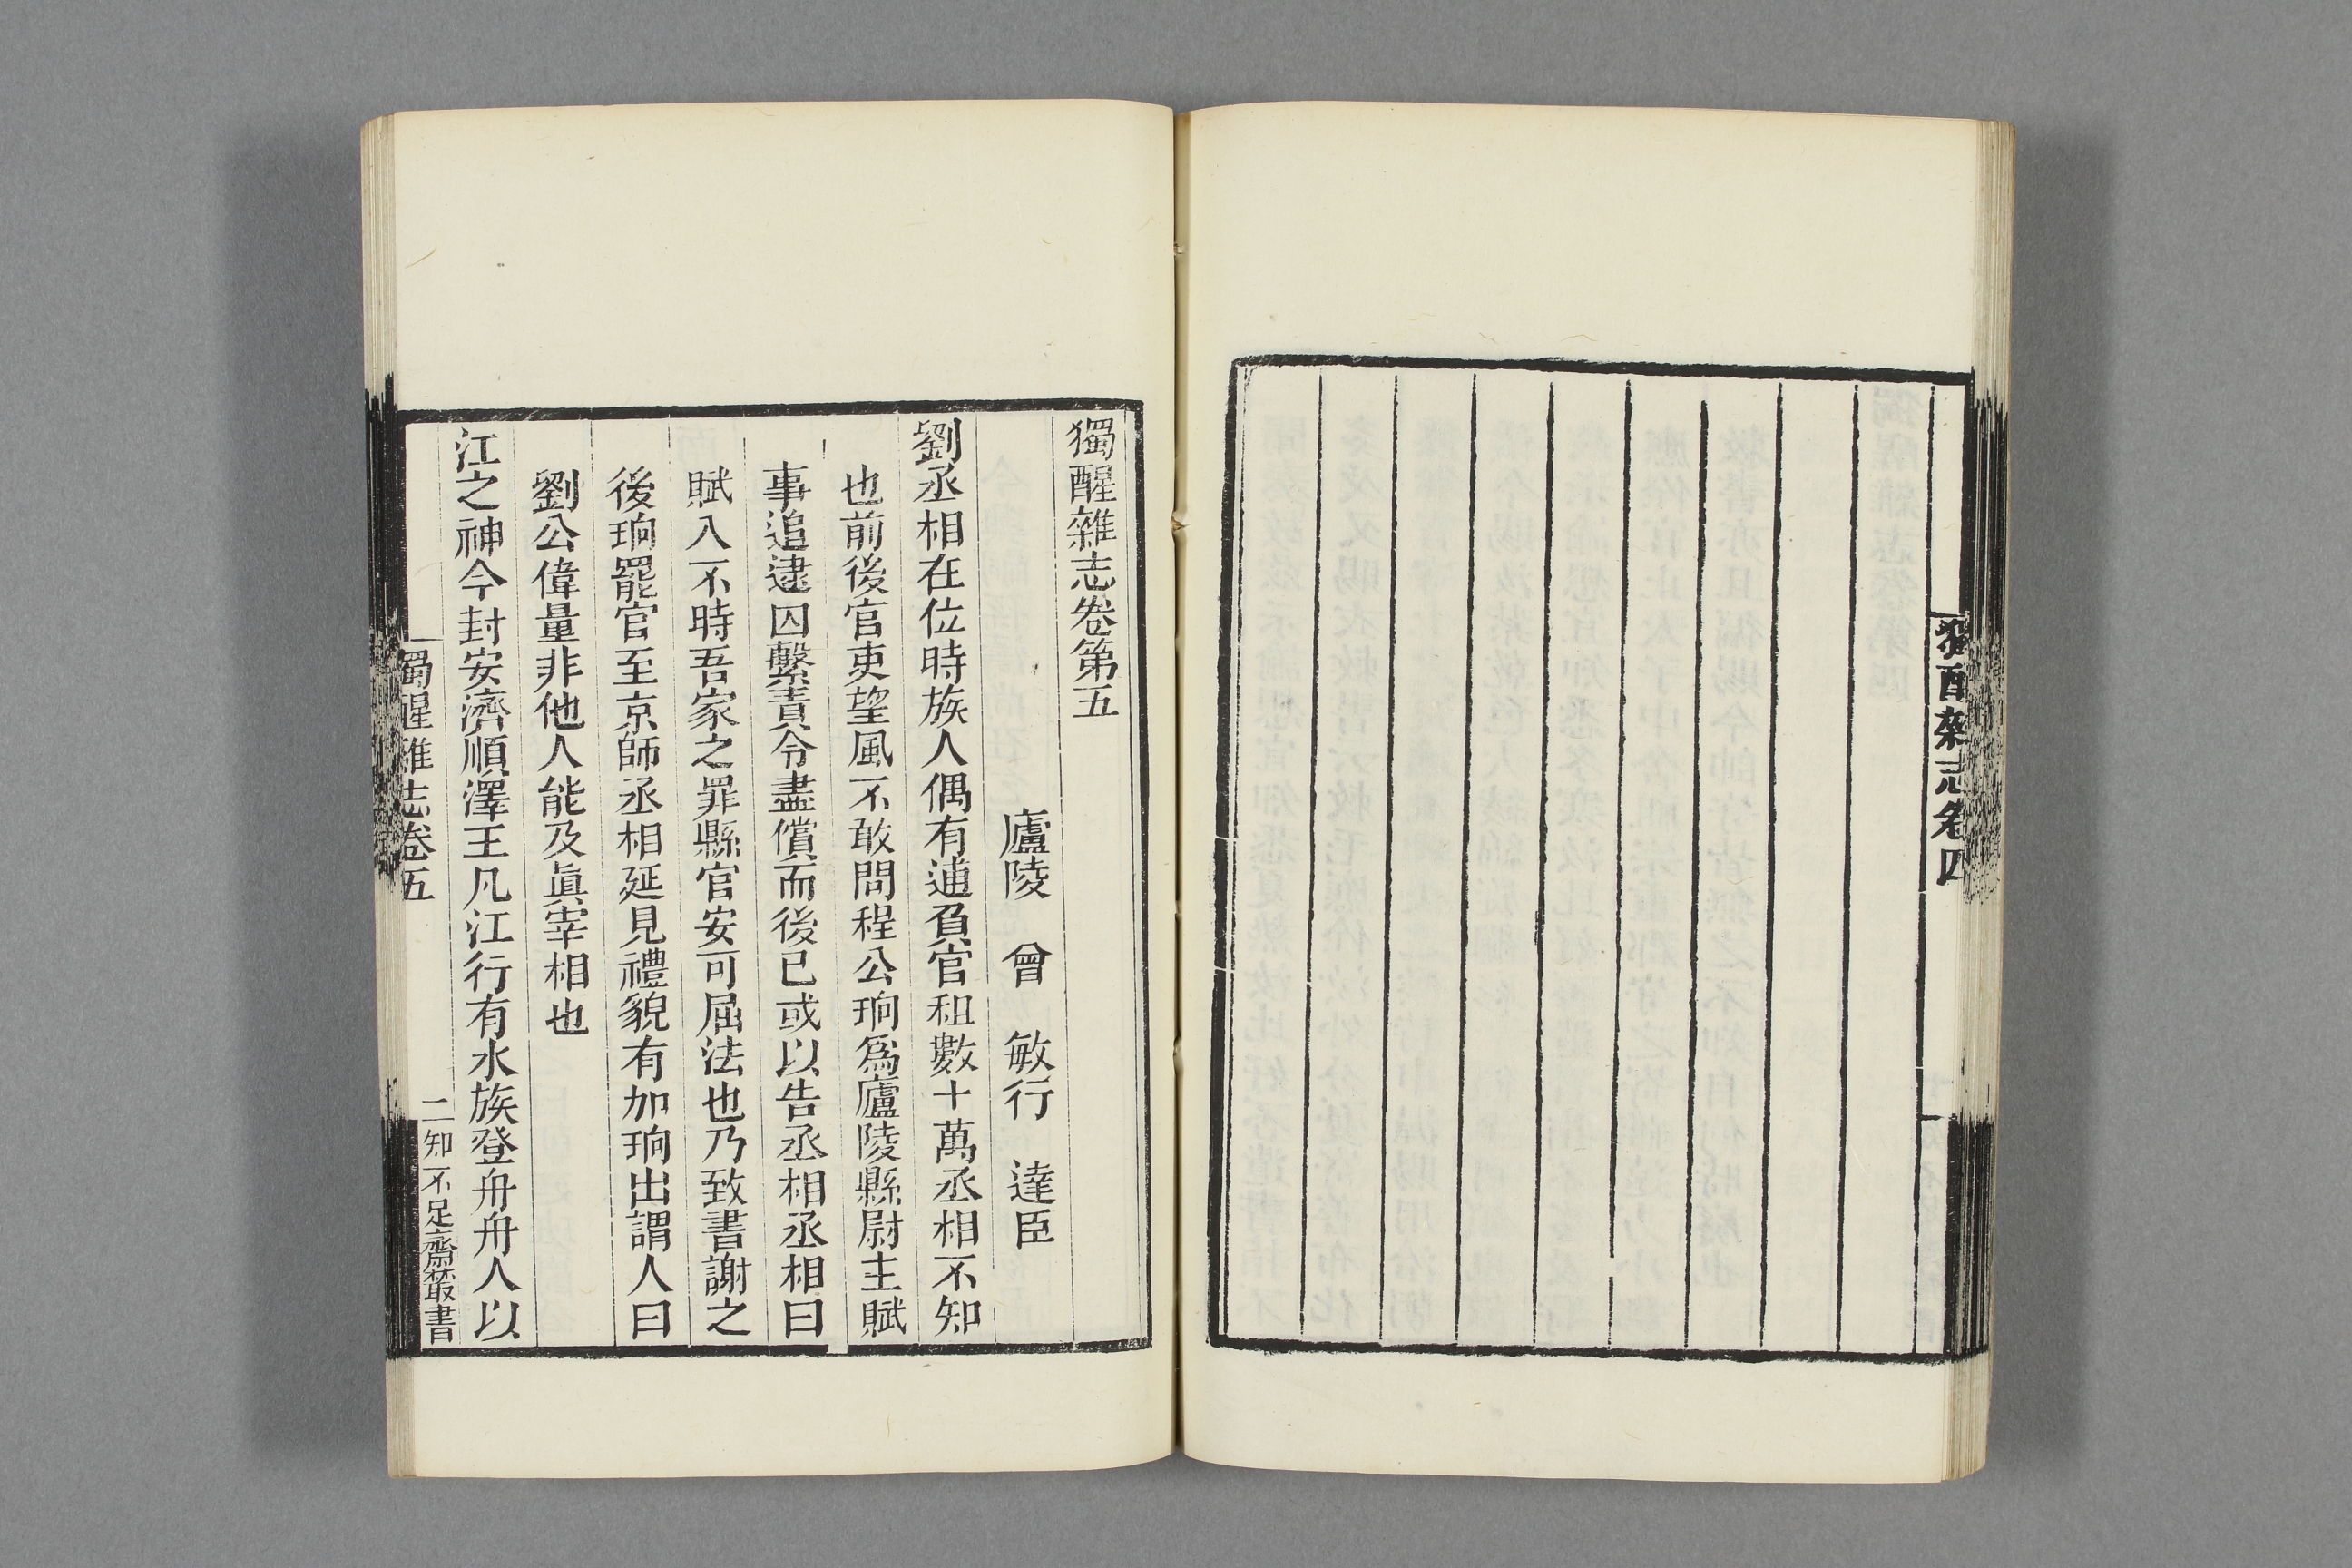 獨醒雜志卷四
獨醒雜志卷第五
廬陵 曾 敏行 達臣
劉丞相在位時族人偶有逋負官租數十萬丞相不知
也前後官吏望風不敢問程公珦爲廬陵縣尉主賦
事追逮囚繫責令盡償而後已或以告丞相丞相曰
賦入不時吾家之罪縣官安可屈法也乃致書謝之
後珦罷官至京師丞相延見禮貌有加珦出謂人曰
劉公偉量非他人能及眞宰相也
江之神今封安濟順澤王凡江行有水族登舟舟人以
獨醒雜志卷五
二
知不足齋叢書